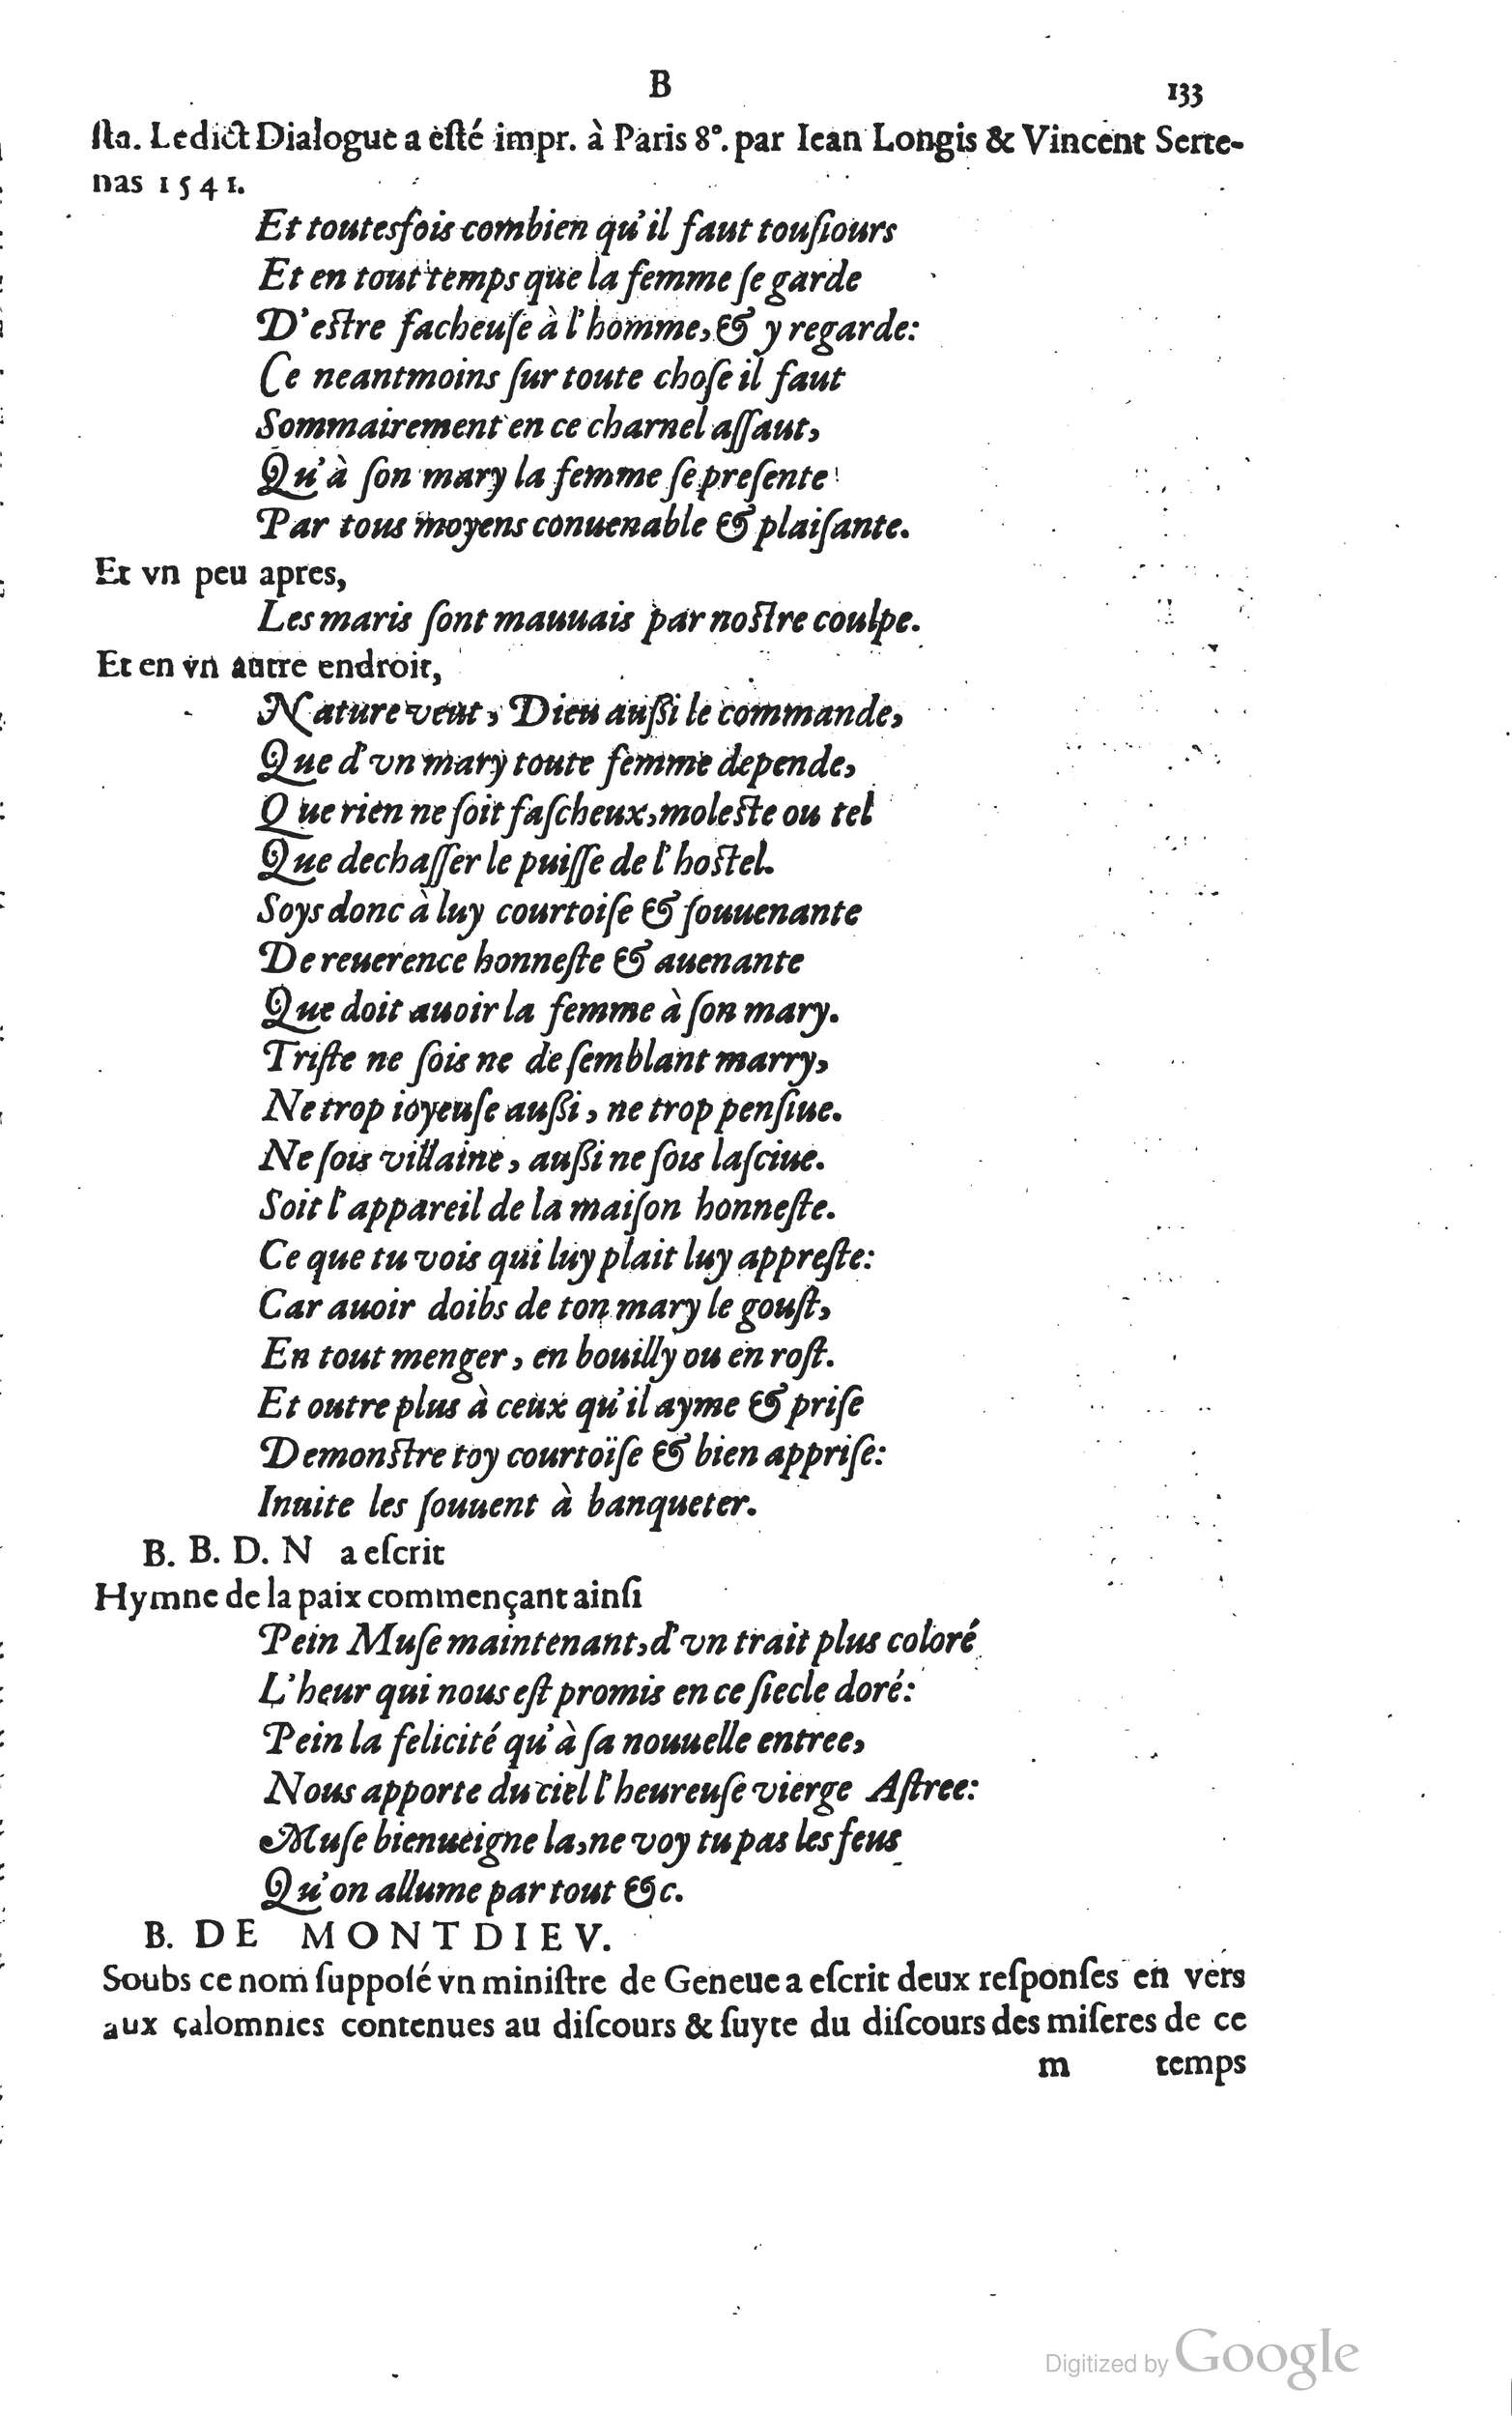 B 133
ſta. Ledict Dialogue a eſté impr. à Paris 8°. par Iean Longis & Vincent Serte-
nas 1541.
Et toutesfois combien qu'il faut touſiours
Et en tout temps que la femme ſe garde
D'eſtre facheuſe à l'homme, & y regarde:
Ce neantmoins ſur toute choſe il faut
Sommairement en ce charnel aſſaut,
Qu'à ſon mary la femme ſe preſente
Par tous moyens conuenable & plaiſante.
Et vn peu apres,
Les maris ſont mauuais par noſtre coulpe.
Et en vn autre endroit,
Nature veut, Dieu auſſi le commande,
Que d'vn mary toute femme depende,
Que rien ne ſoit faſcheux, moleſte ou tel
Que dechaſſer le puiſſe de l'hoſtel.
Soys donc à luy courtoiſe & ſouuenante
De reuerence honneſte & auenante
Que doit auoir la femme à ſon mary.
Triſte ne ſois ne de ſemblant marry,
Ne trop ioyeuſe auſſi, ne trop penſiue.
Ne ſois villaine, auſſi ne ſois laſciue.
Soit l'appareil de la maiſon honneſte.
Ce que tu vois qui luy plait luy appreſte:
Car auoir doibs de ton mary le gouſt,
En tout menger, en bouilly ou en roſt.
Et outre plus à ceux qu'il ayme & priſe
Demonſtre toy courtoiſe & bien appriſe:
Inuite les ſouuent à banqueter.
B. B. D. N a eſcrit
Hymne de la paix commençant ainſi
Pein Muſe maintenant, d'vn trait plus coloré
L'heur qui nous eſt promis en ce ſiecle doré:
Pein la felicité qu'à ſa nouuelle entree,
Nous apporte du ciel l'heureuſe vierge Aſtree:
Muſe bienueigne la, ne voy tu pas les feus
Qu'on allume par tout &c.
B. DE MONTDIEV.
Soubs ce nom ſuppoſé vn miniſtre de Geneue a eſcrit deux reſponſes en vers
aux calomnies contenues au diſcours & ſuyte du diſcours des miſeres de ce
m temps
Digitized by Google